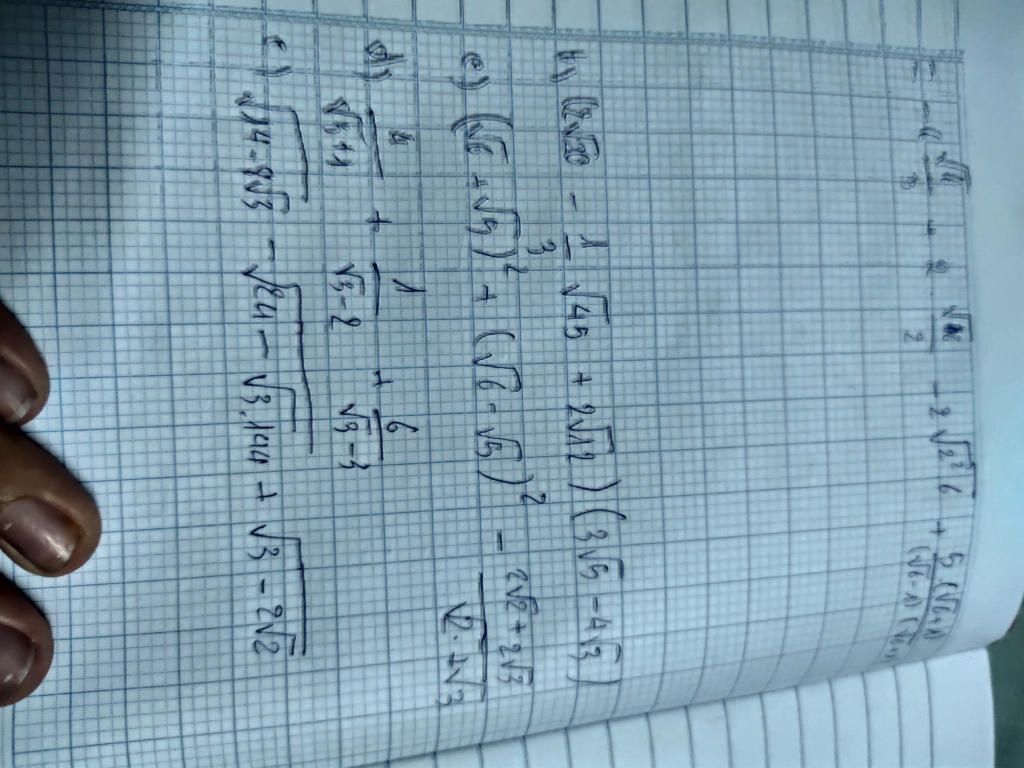 = -4 \frac{\sqrt{6}}{3} + 2 \frac{\sqrt{6}}{2} - 2\sqrt{2^2 6} + \frac{5(\sqrt{6}+1)}{(\sqrt{6}-1)(\sqrt{6}+1)}
b) (2√20 - \frac{1}{3} √45 + 2√12)(3√5 - 4√3)
c) (√6 + √5)² + (√6 - √5)² - \frac{2√2 + 2√3}{√2 + √3}
d) \frac{4}{√3+1} + \frac{1}{√3-2} + \frac{6}{√3-3}
e) \sqrt{14-8√3} - \sqrt{24 - √3.144} + \sqrt{3-2√2}